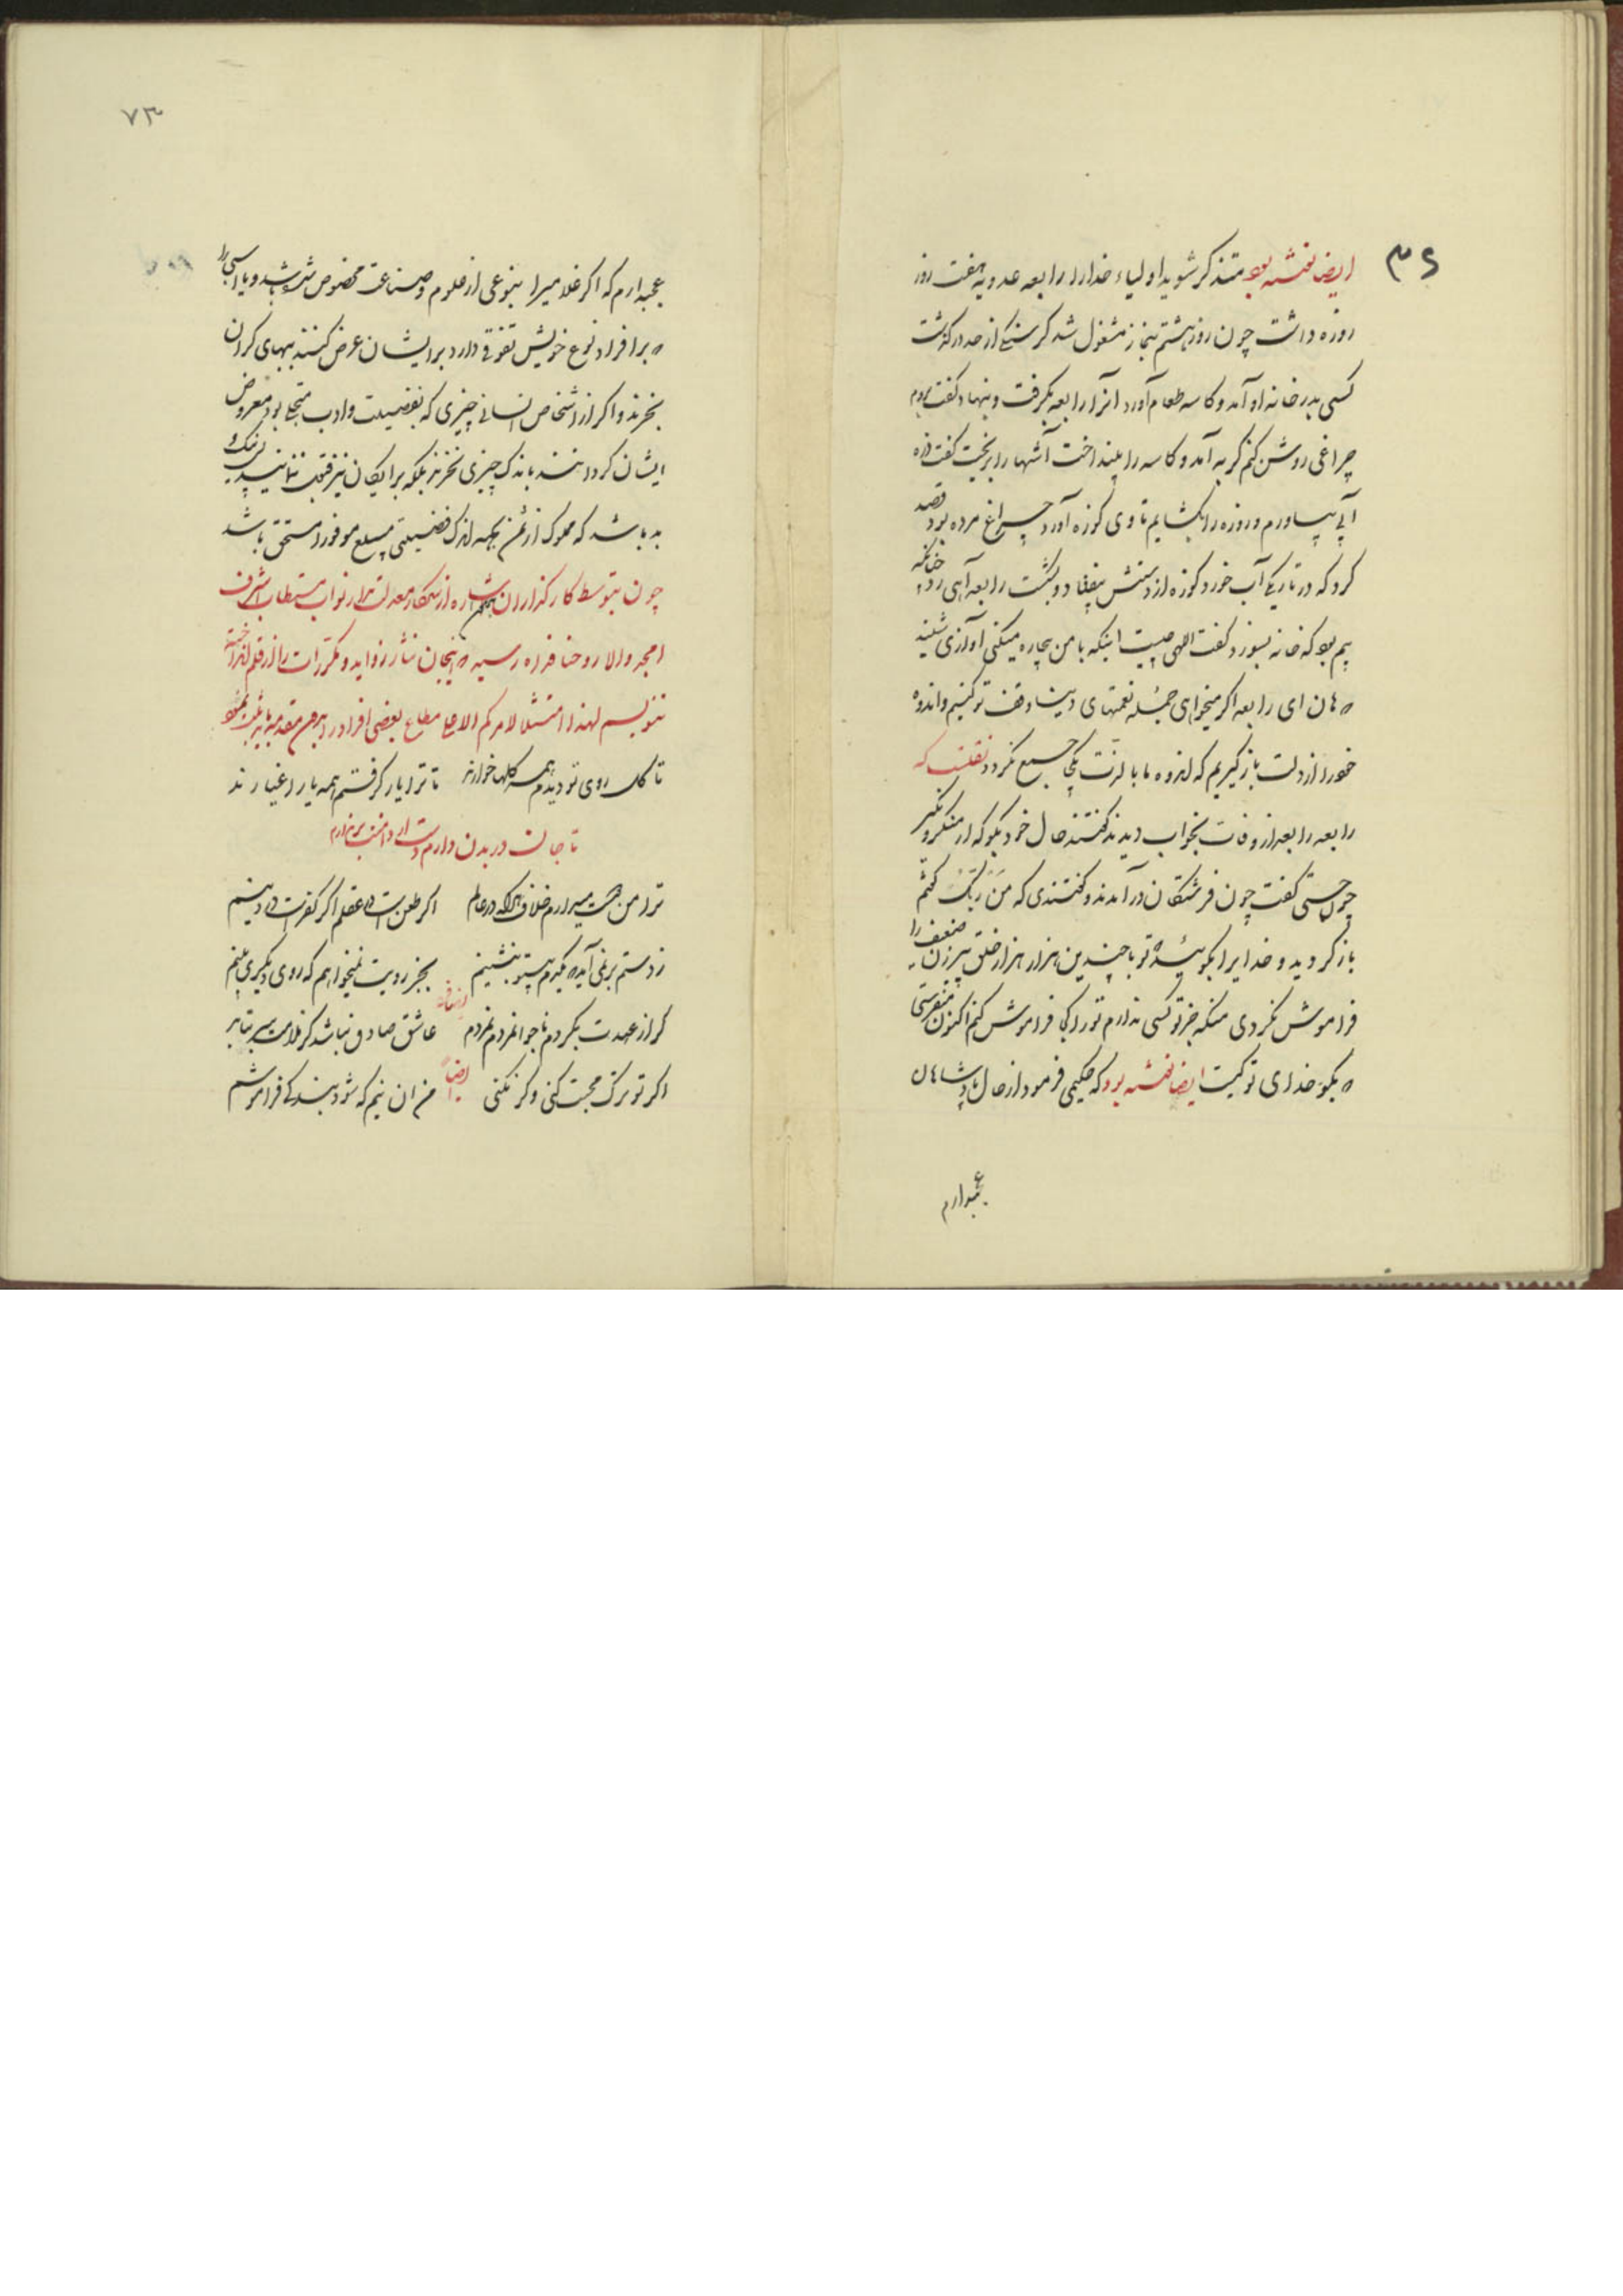 ایضا نوشته بود متذکر شوید اولیاء خدا را رابعه عدویه هفت روز
روزه داشت چون روز هشتم بنماز مشغول شد گرسنگی از حد درگذشت
کسی بدر خانه او آمد و کاسه طعام آورد آنرا رابعه بگرفت و بنهاد گفت بروم
چراغی روشن کنم گربه آمد و کاسه را بینداخت آشها را بریخت گفت
آبی بیاورم و روزه را بگشایم تا وی کوزه آورد چراغ مرده بود قصد
کرد که در تاریکی آب خورد کوزه از دستش بیفتاد و بشکست رابعه آهی زد چنانکه
بیم بود که خانه بسوزد گفت الهی چیست اینکه با من بیچاره میکنی آوازی شنید
که هان ای رابعه اگر میخواهی جمله نعمتهای دنیا وقف تو کنیم و اندوه
خود را از دلت باز گیریم که اندوه ما با لذت یکجا جمع نگردد نقلست که
رابعه را بعد از وفات بخواب دیدند گفتند حال خود بگو که از منکر و نکیر
چون جستی گفت چون فرشتگان در آمدند و گفتندی که من ربک گفتم
باز گردید و خدا را بگویید که تو با چندین هزار هزار خلق پیرزن ضعیف را
فراموش نکردی منکه جز تو کسی ندارم تو را کی فراموش کنم اکنون میفرستی
که بگو خدای تو کیست ایضا نوشته بود که حکیمی فرمود از حال پادشاهان
عجبدارم
۷۳
عجبدارم که اگر غلامی را بنوعی از علوم و صناعت مخصوص شده باشد و یا اسبی را
که بر افراد نوع خویش تفوقی دارد بر ایشان عرض کنند ببهای گران
بخرند و اگر از اشخاص انسانی چیزی که بفضیلت و ادب متحلی بود معروض
ایشان گردانند باندک چیزی نخرند بلکه برایگان نیز قبول ننمایند
بد باشد که مملوک از ثمن بجهة اندک فضیلتی مبلغ موفور را مستحق باشد
چون بتوسط کارگذاران اشاره از سرکار معدلت مدار نواب مستطاب اشرف
امجد والا روحنا فداه رسید که اینجان نثار زواید و مکررات را از قلم انداخته
ننویسم لهذا امتثالا لامرکم الاعلی مطاع بعضی افراد در
تا گل روی تو دیدم همه گلها خوارند تا ترا یار گرفتم همه یار اغیارند
تا جان در بدن دارم دست از دامنت بر ندارم
ترا من دوست میدارم خلاف هر که در عالم اگر طعن است در عقلم اگر کفر است در دینم
ز دستم بر نمی آید که یکدم بیتو بنشینم بجز رویت نمیخواهم که روی دیگری بینم
گر از عهدت بگردم ناجوانمردم نه مردم عاشق صادق نباشد کز ملامت سر بتابد
ایضاً
اگر تو ترک محبت کنی وگر نکنی من آن نیم که شود بندگی فراموشم
ایضاً